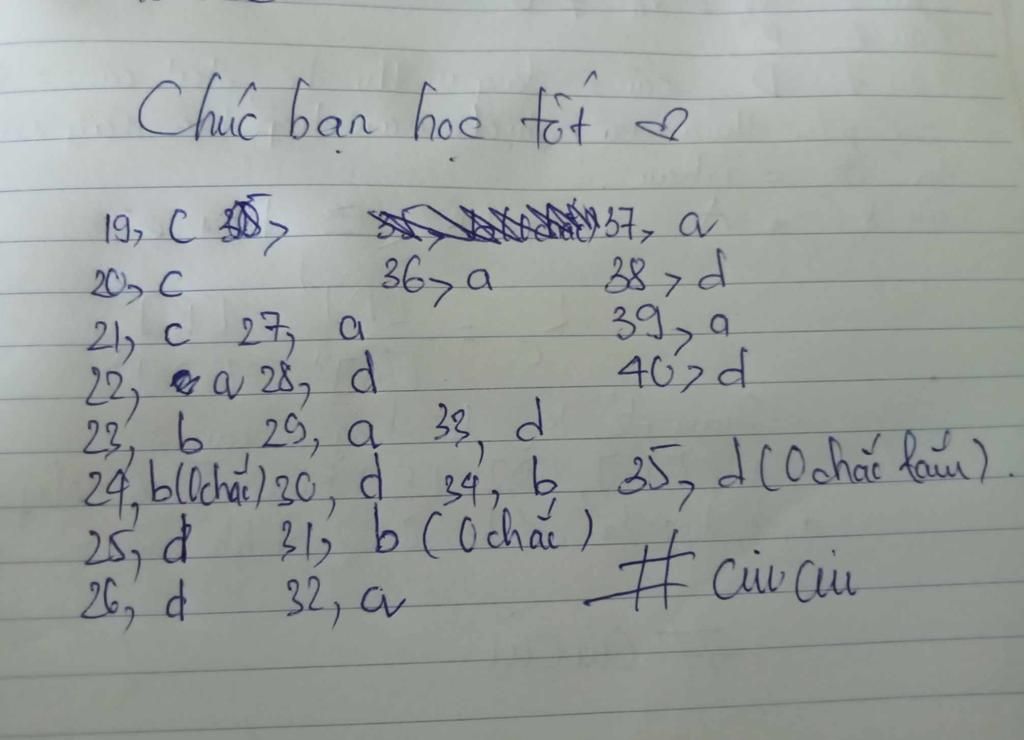 Chúc bạn học tốt ♡
19, c 37, a
20, c 36, a 38, d
21, c 27, a 39, a
22, a 28, d 40, d
23, b 29, a 33, d
24, b (0 chắc) 30, d 34, b 35, d (0 chắc lắm).
25, d 31, b (0 chắc)
26, d 32, a #